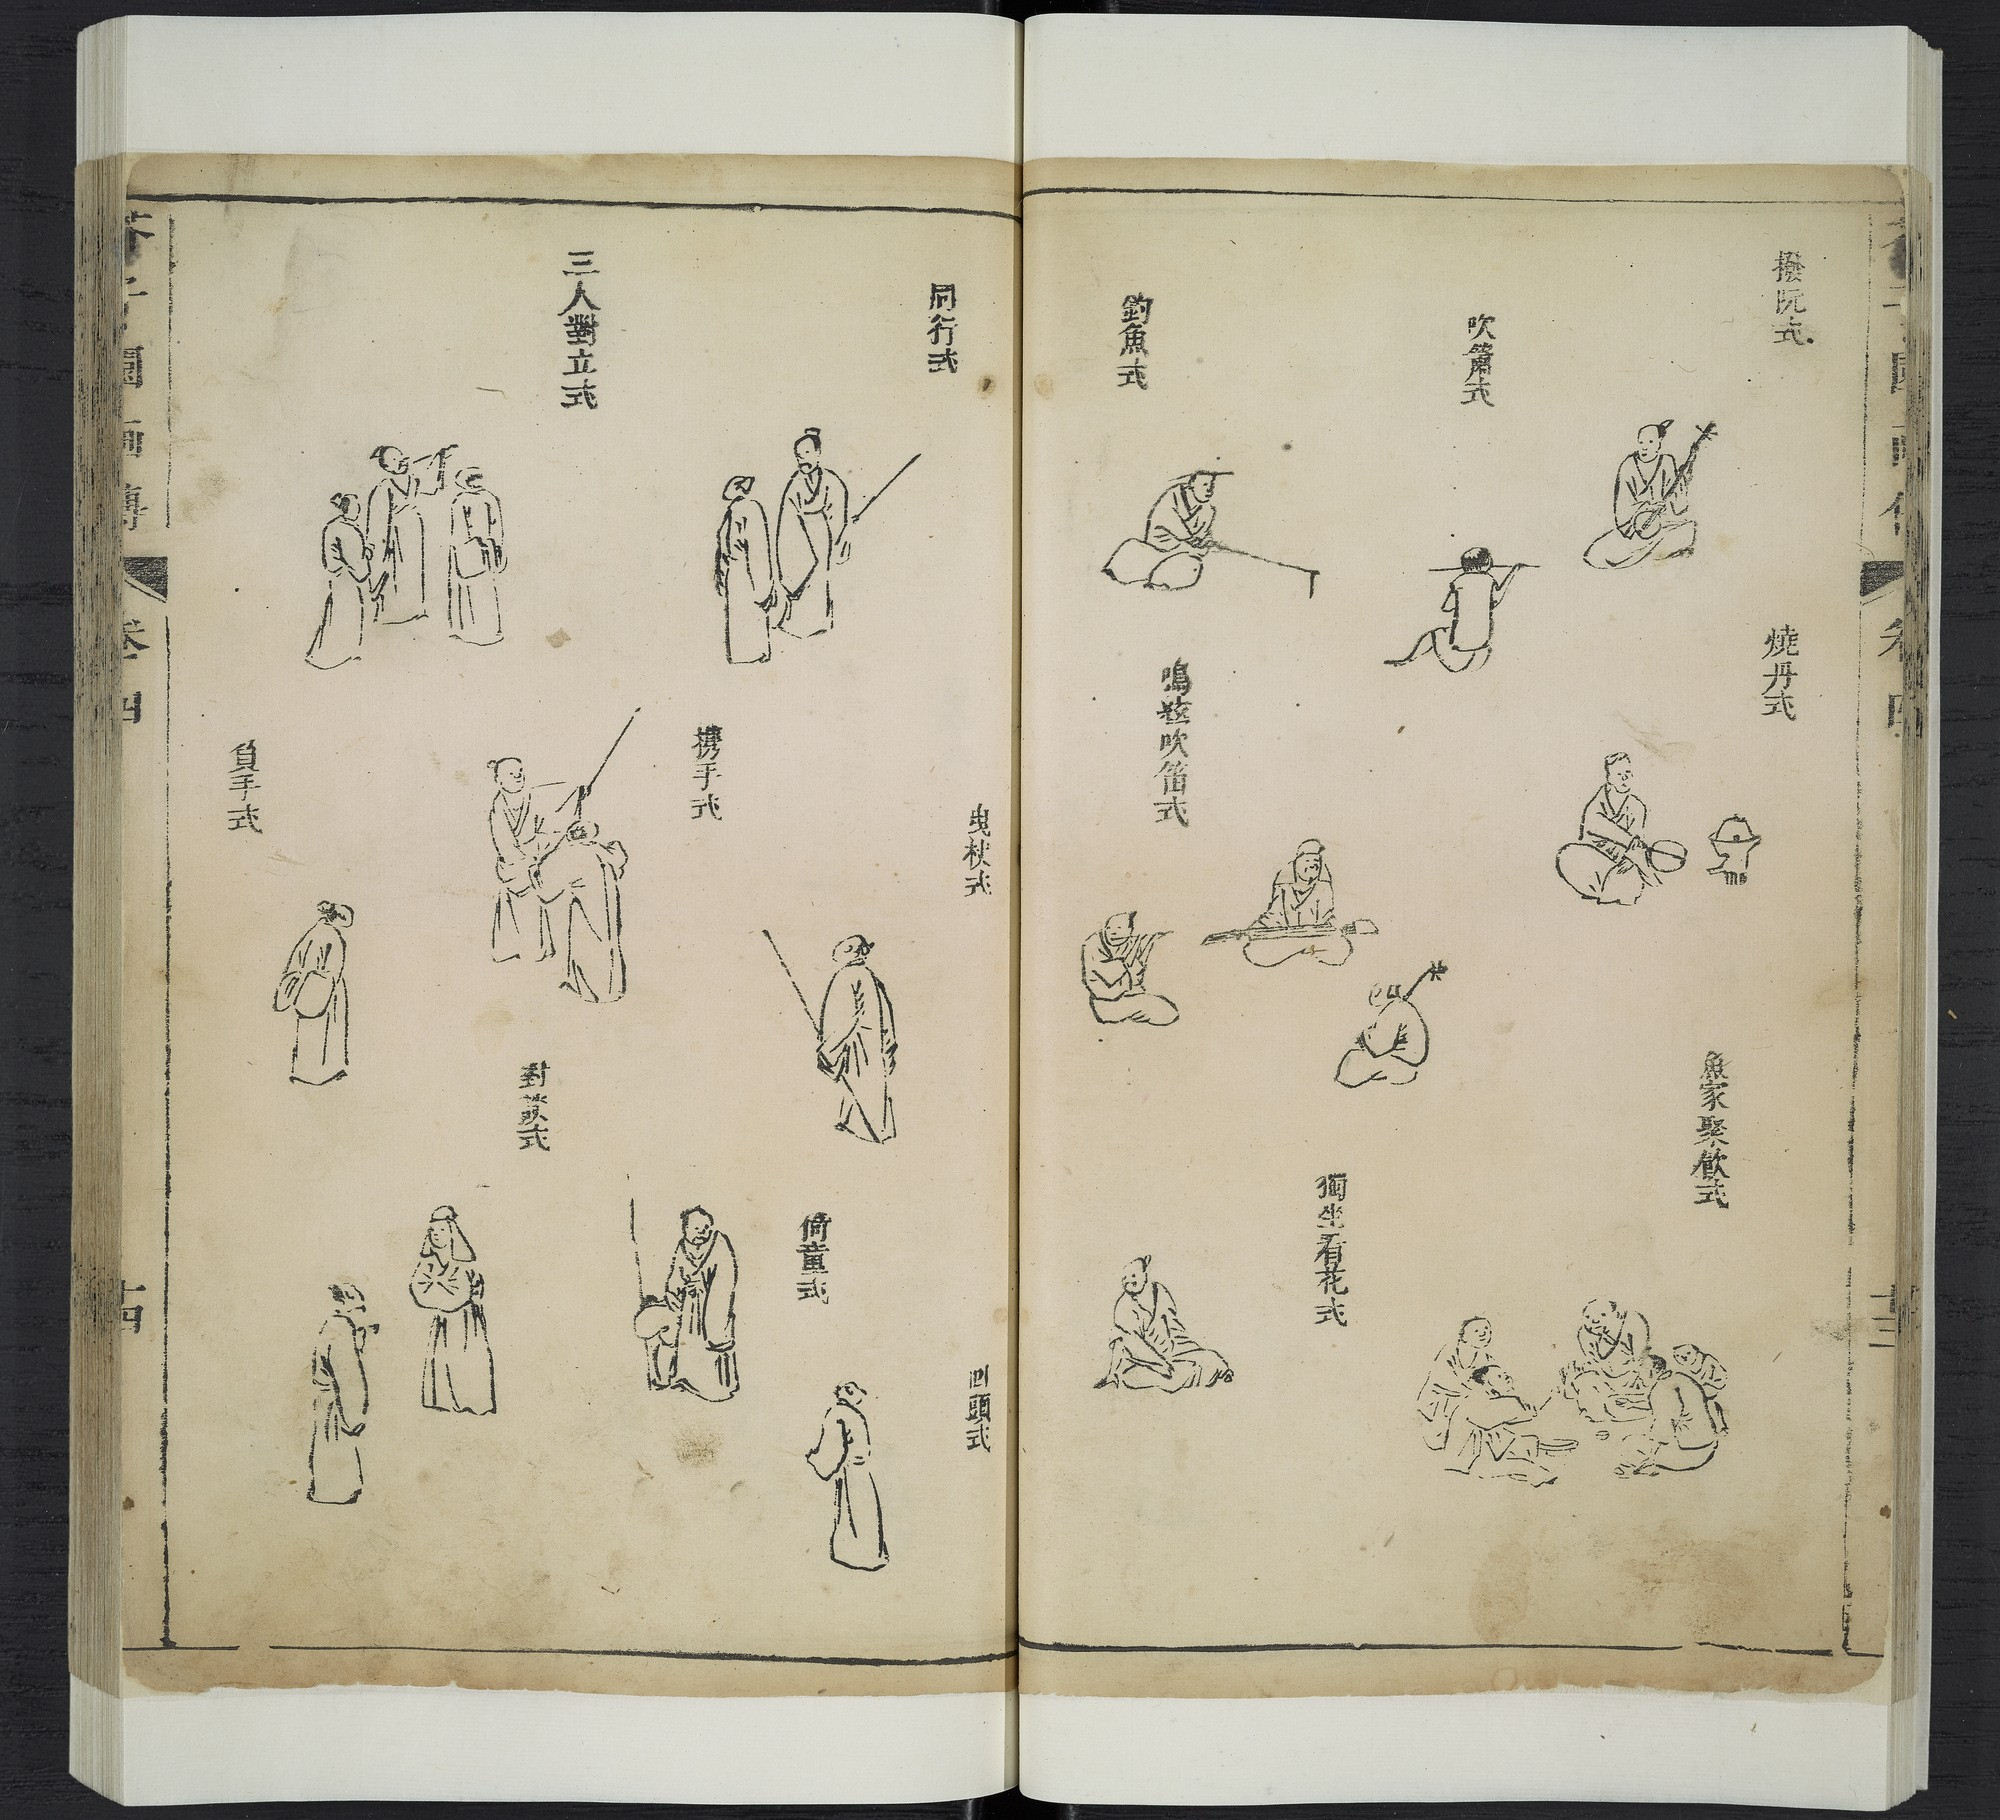 撥阮式
吹簫式
釣魚式
燒丹式
鳴弦吹笛式
魚家聚飲式
獨坐看花式
同行式
三人對立式
曳杖式
携手式
負手式
對談式
倚童式
回頭式
子園畫傳
卷四
十四